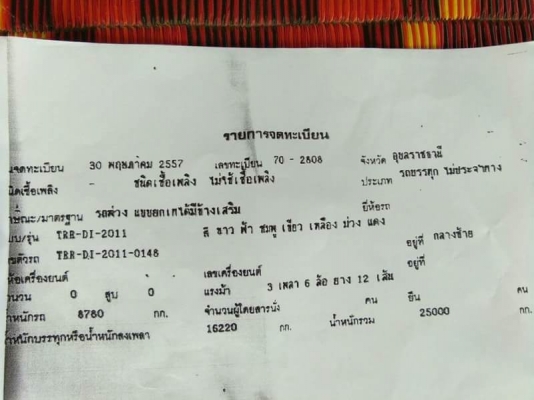 รายการจดทะเบียน
จดทะเบียน 30 พฤษภาคม 2557 เลขทะเบียน 70 - 2808 จังหวัด อุบลราชธานี
ชนิดเชื้อเพลิง - ชนิดเชื้อเพลิง ไม่ใช้เชื้อเพลิง ประเภท รถบรรทุก ไม่ประจำทาง
/มาตรฐาน รถพ่วง แบบยกเทได้มีข้างเสริม ยี่ห้อรถ
/รุ่น TRR-DI-2011 สี ขาว ฟ้า ชมพู เขียว เหลือง ม่วง แดง
ตัวรถ TRR-DI-2011-0148 อยู่ที่ กลางซ้าย
ห้อเครื่องยนต์ เลขเครื่องยนต์ อยู่ที่
จำนวน 0 สูบ 0 แรงม้า 3 เพลา 6 ล้อ ยาง 12 เส้น
น้ำหนักรถ 8780 กก. จำนวนผู้โดยสารนั่ง คน ยืน คน
น้ำหนักบรรทุกหรือน้ำหนักลงเพลา 16220 กก. น้ำหนักรวม 25000 กก.